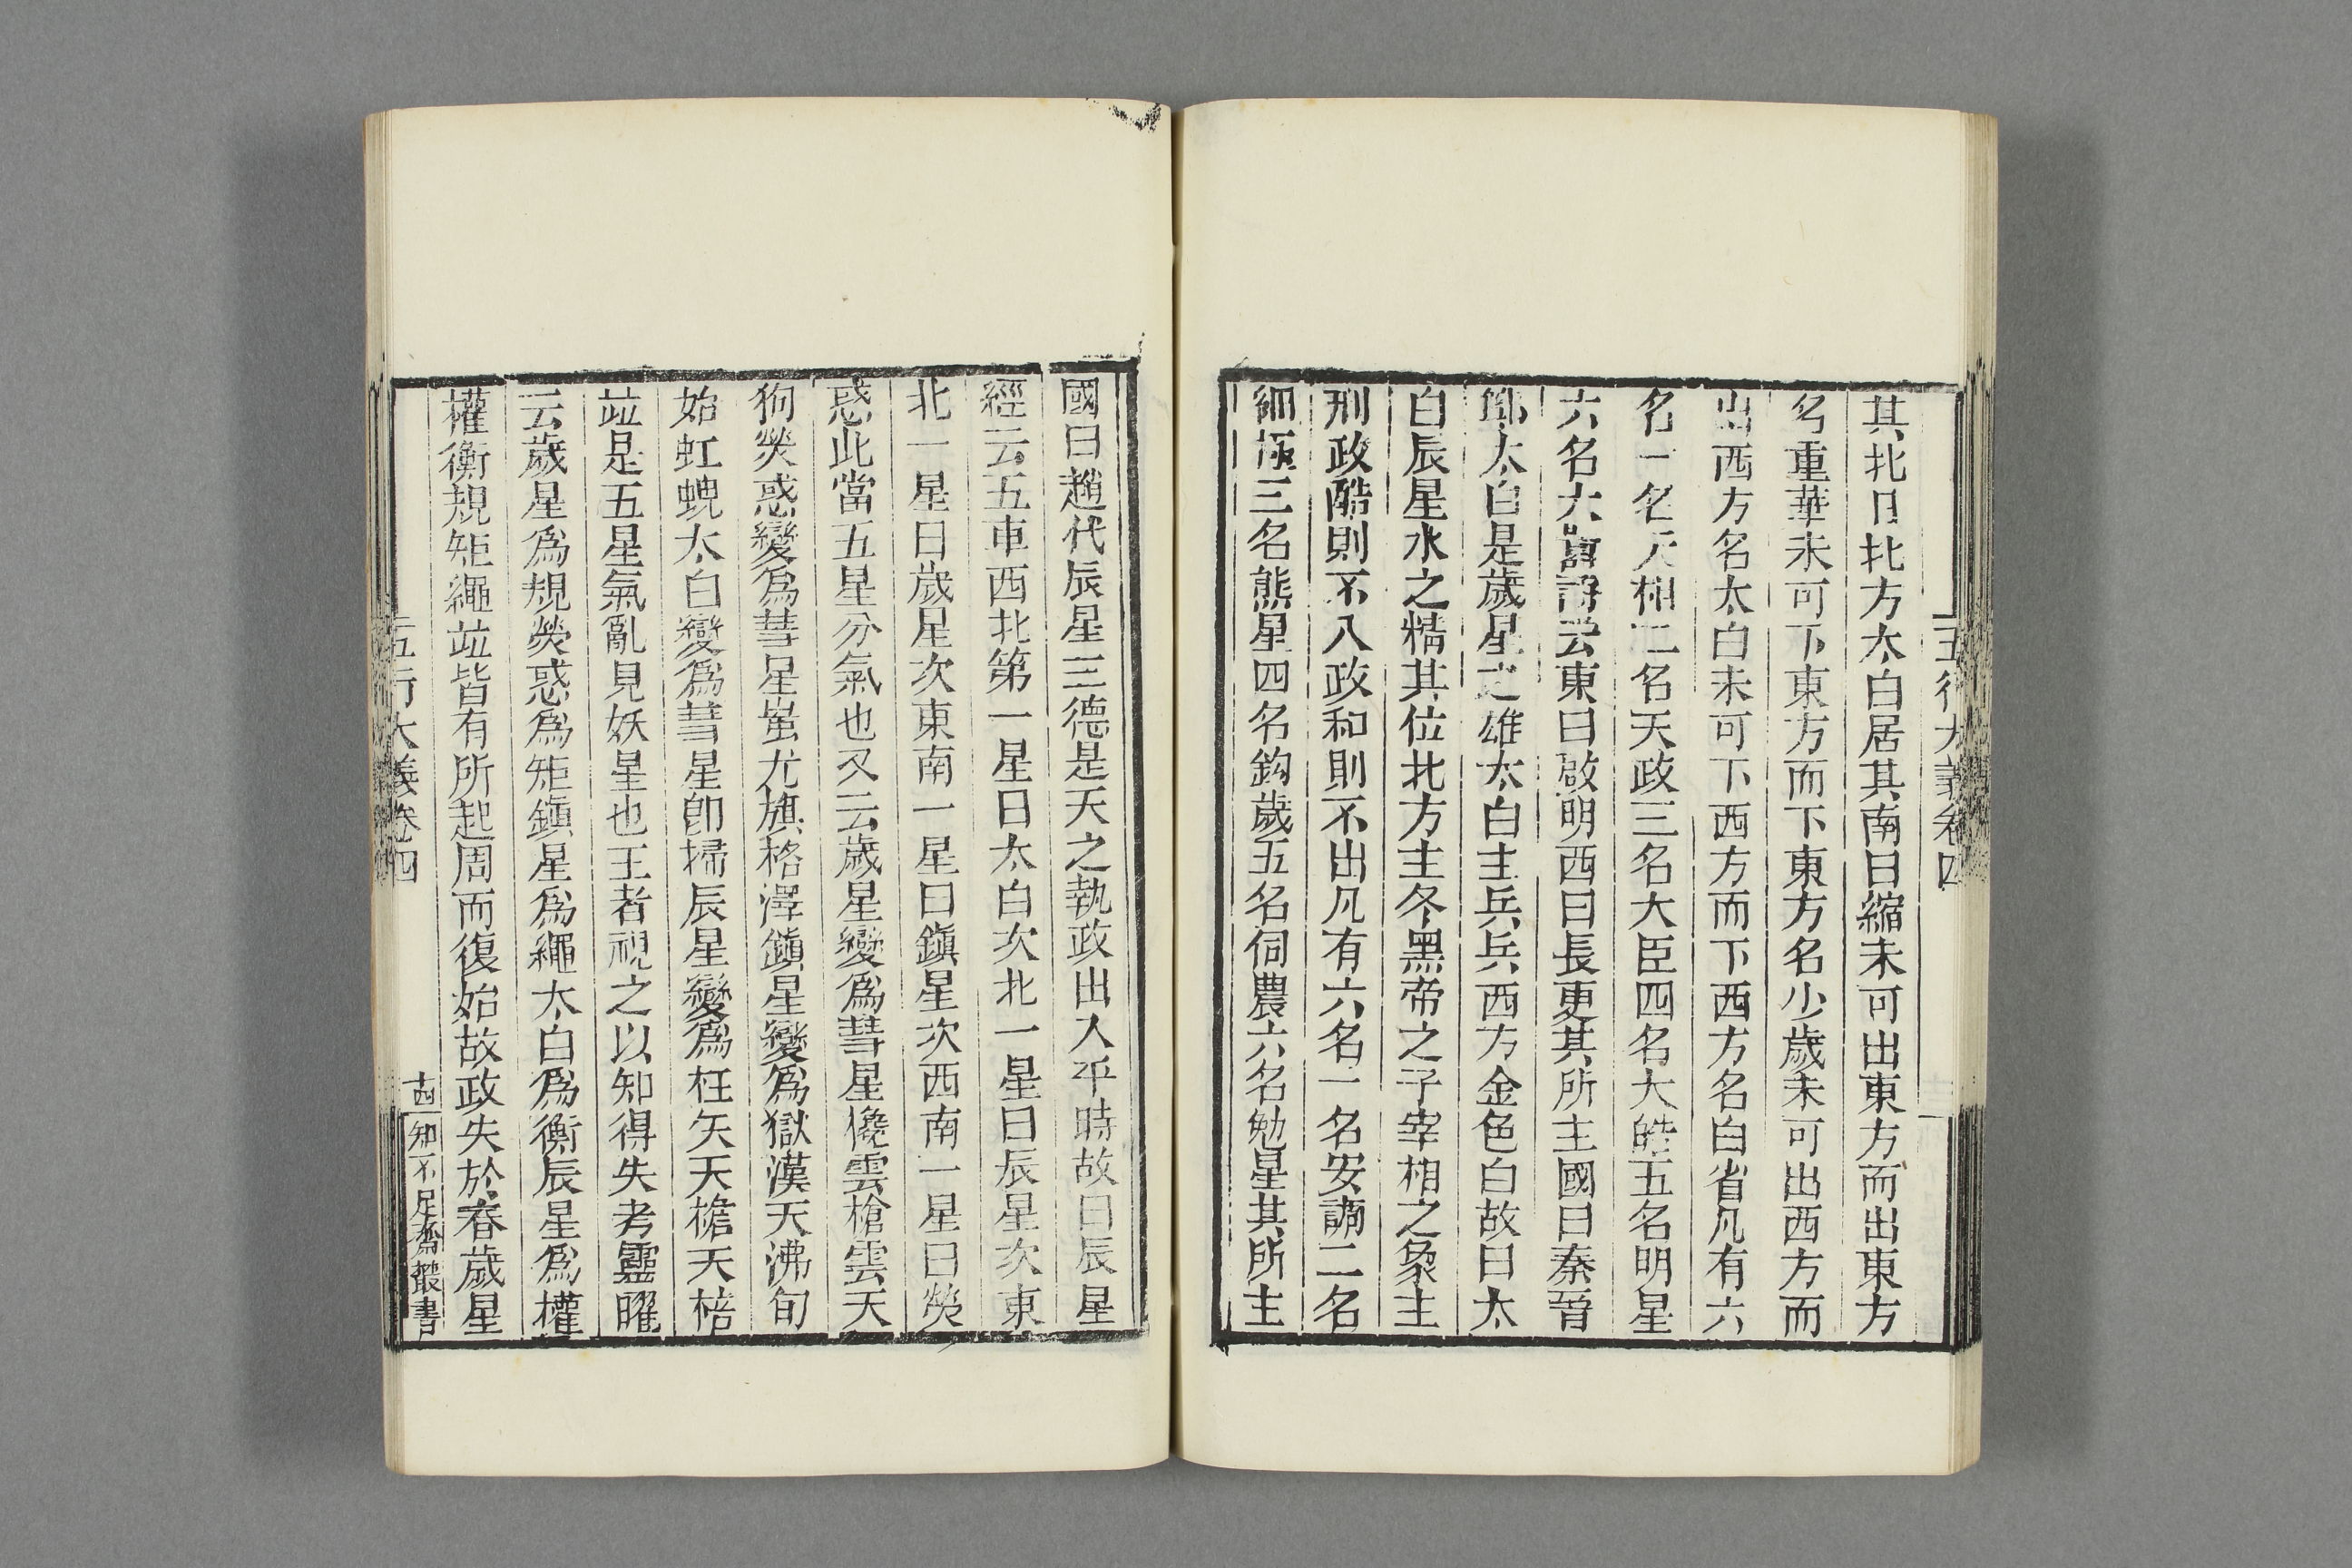 五行大義卷四
其北曰北方太白居其南曰縮未可出東方而出東方
名重華未可下東方而下東方名少歲未可出西方而
出西方名太白未可下西方而下西方名白省凡有六
名一名天相二名天政三名大臣四名大皓五名明星
六名大嚻詩云東曰啟明西曰長更其所主國曰秦晉
鄭太白是歲星之雄太白主兵兵西方金色白故曰太
白辰星水之精其位北方主冬黑帝之子宰相之象主
刑政酷則不入政和則不出凡有六名一名安調二名
細極三名熊星四名鈎歲五名伺農六名勉星其所主
國曰趙代辰星三德是天之執政出入平時故曰辰星
經云五車西北第一星曰太白次北一星曰辰星次東
北一星曰歲星次東南一星曰鎭星次西南一星曰熒
惑此當五星分氣也又云歲星變爲彗星欃雲槍雲天
狗熒惑變爲彗星蚩尤旗格澤鎭星變爲獄漢天沸旬
始虹蜺太白變爲彗星卽掃辰星變爲枉矢天㯹天棓
竝是五星氣亂見妖星也王者視之以知得失考靈曜
云歲星爲規熒惑爲矩鎭星爲繩太白爲衡辰星爲權
權衡規矩繩竝皆有所起周而復始故政失於春歲星
五行大義卷四
十四
知不足齋叢書